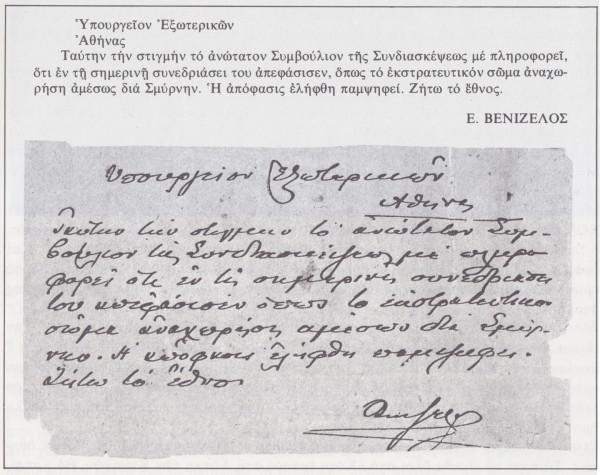 Ὑπουργεῖον Ἐξωτερικῶν
Ἀθήνας
Ταύτην τήν στιγμήν τό ἀνώτατον Συμβούλιον τῆς Συνδιασκέψεως μέ πληροφορεῖ,
ὅτι ἐν τῇ σημερινῇ συνεδριάσει του ἀπεφάσισεν, ὅπως τό ἐκστρατευτικόν σῶμα ἀναχω-
ρήση ἀμέσως διά Σμύρνην. Ἡ ἀπόφασις ἐλήφθη παμψηφεί. Ζήτω τό ἔθνος.
Ε. ΒΕΝΙΖΕΛΟΣ
Υπουργείον Εξωτερικών
Αθήνας
Ταύτην την στιγμήν το ανώτατον Συμ-
βούλιον της Συνδιασκέψεως με πληρο-
φορεί ότι εν τη σημερινή συνεδριάσει
του απεφάσισεν όπως το εκστρατευτικόν
σώμα αναχωρήση αμέσως διά Σμύρ-
νην. Η απόφασις ελήφθη παμψηφεί.
Ζήτω το έθνος